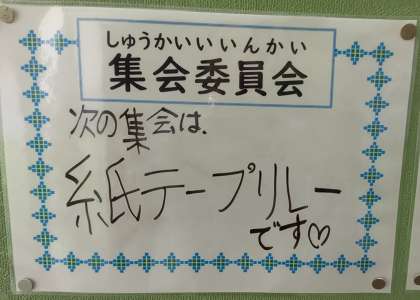 しゅうかいいいんかい
集会委員会
次の集会は、
紙テープリレー
です♡